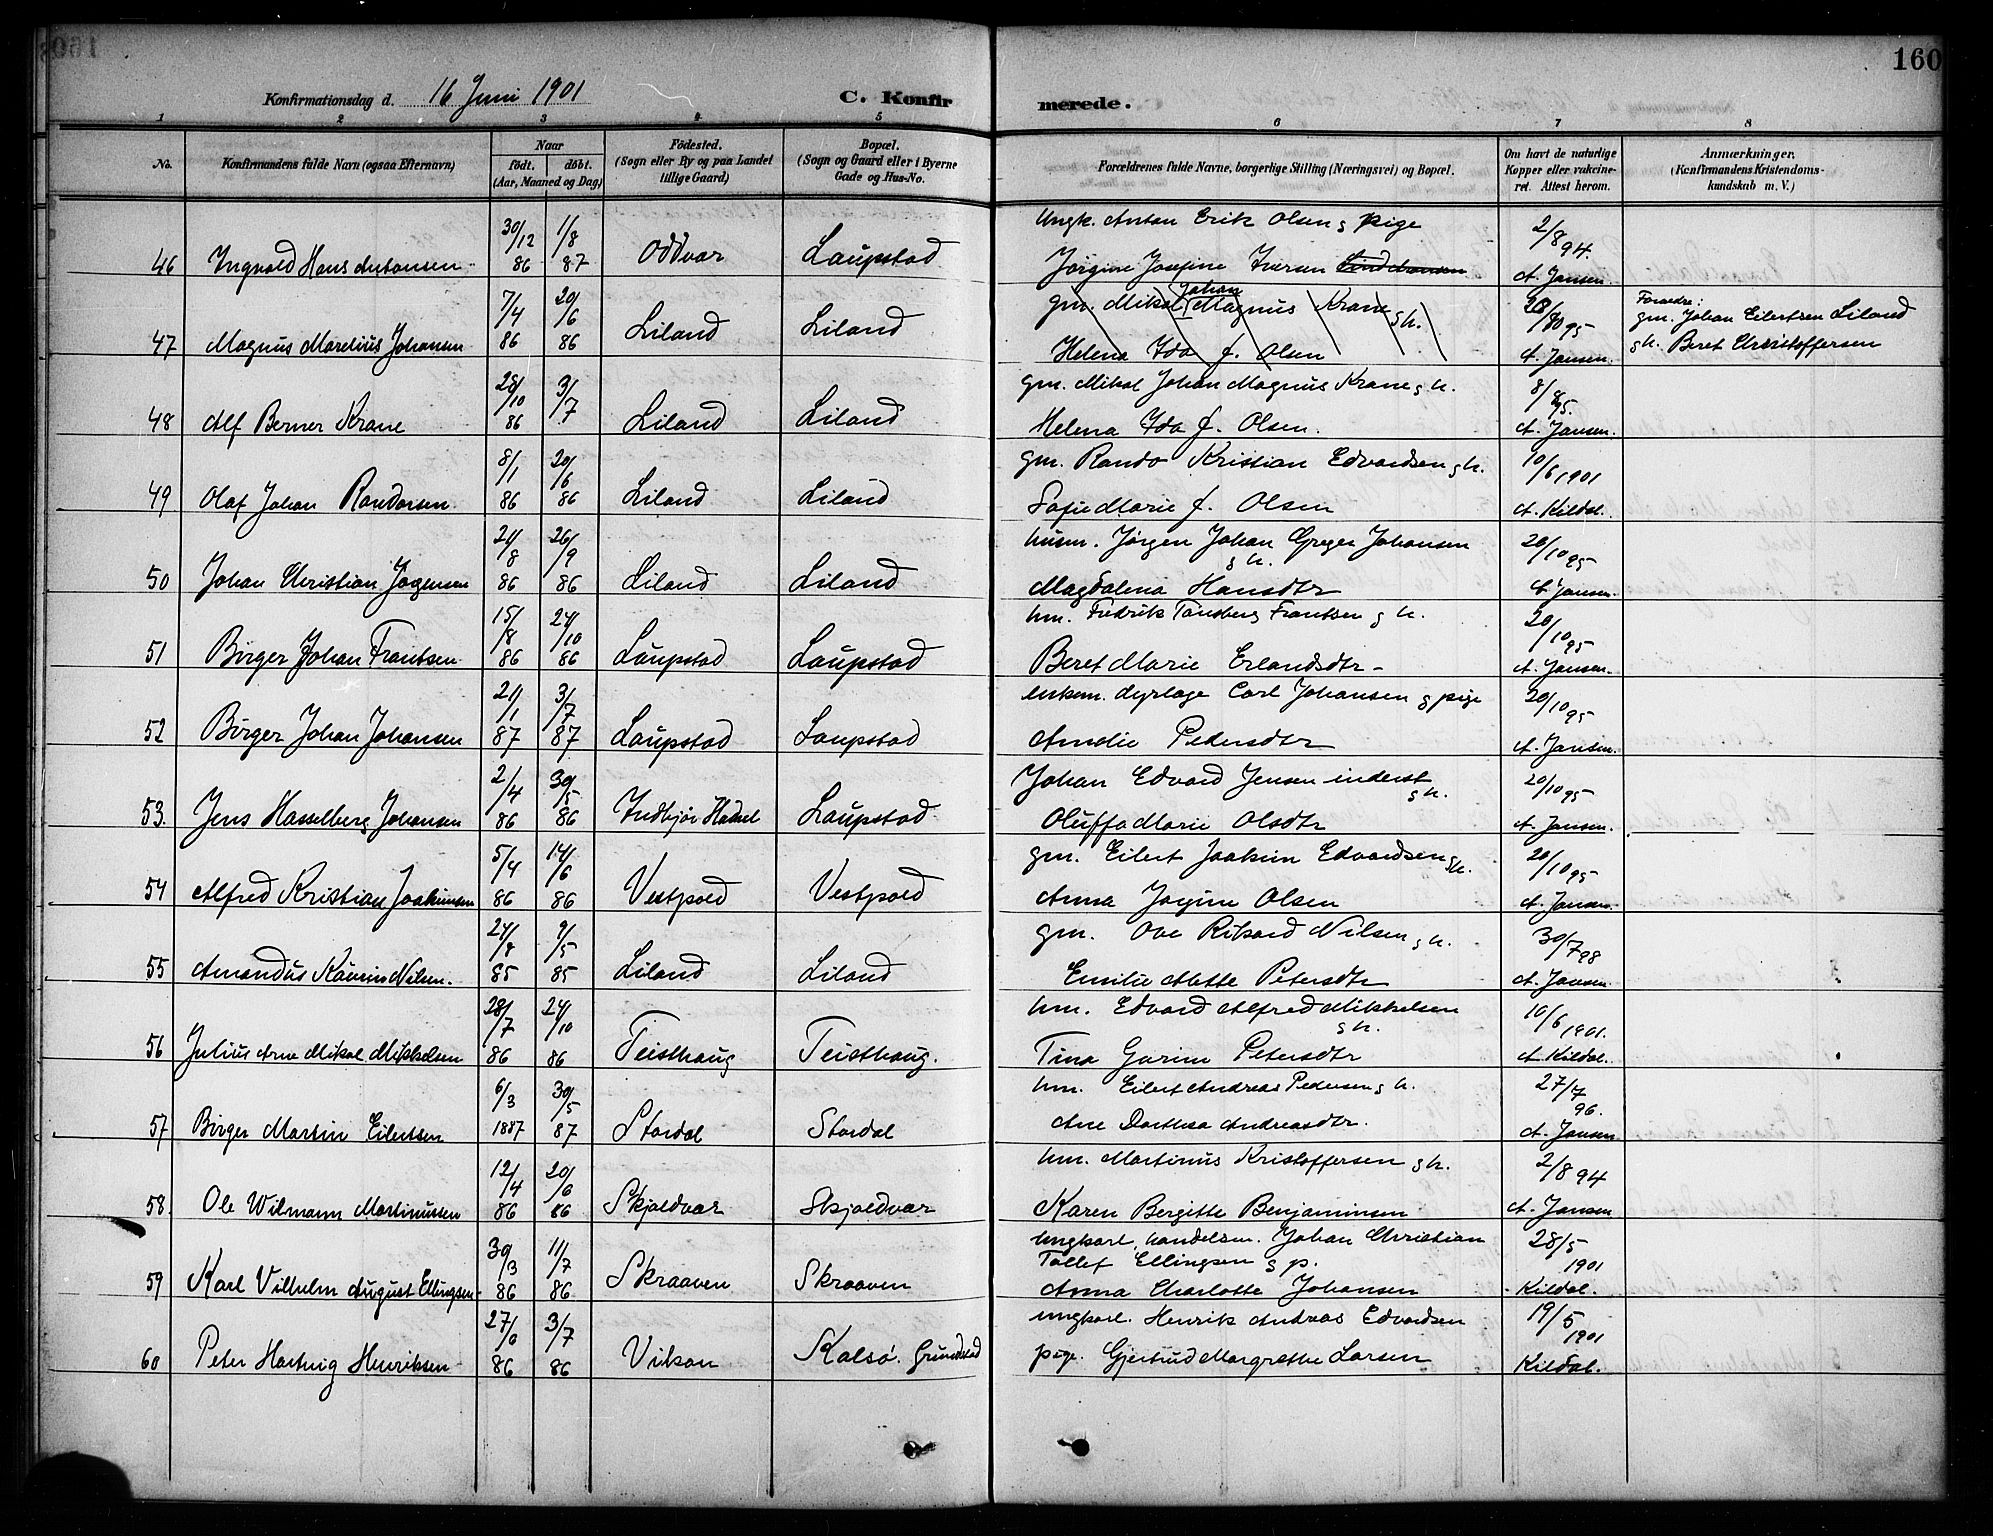 160
Konfirmationsdag d. 16 Juni 1901
C. Konfirmerede.
1 2 3 4 5 6 7 8
No. Konfirmandens fulde Navn (ogsaa Efternavn) Naar født. døbt. (Aar, Maaned og Dag) Fødested. (Sogn eller By og paa Landet tillige Gaard) Bopæl. (Sogn og Gaard eller i Byerne Gade og Hus-No. Forældrenes fulde Navne, borgerlige Stilling (Næringsvei) og Bopæl. Om havt de naturlige Kopper eller vakcineret. Attest herom. Anmærkninger. (Konfirmandens Kristendomskundskab m. V.)
Ungk. Anton Erik Olsen g pige
46 Ingvald Hans Antonsen 30/12 86 1/8 87 Oddvær Laupstad Jørgine Josefine Iversen 2/8 94. A. Jansen.
gm. Mikal Johan Magnus Krane g h.
47 Magnus Marelius Johansen 7/4 86 20/6 86 Liland Liland Helena Ida f. Olsen A. Jansen. Forældre: gm. Johan Eilertsen Liland g h. Beret Christoffersen
gm. Mikal Johan Magnus Krane g h.
48 Alf Berner Krane 28/10 86 3/7 Liland Liland Helena Ida f. Olsen. 8/8 95. A. Jansen.
gm. Rando Kristian Edvardsen g h.
49 Olaf Johan Randorsen 8/1 86 20/6 86 Liland Liland Sofie Marie f. Olsen 10/6 1901 A. Kildal.
husm. Jørgen Johan Greger Johansen g h.
50 Johan Christian Jørgensen 21/8 86 26/9 86 Liland Liland Magdalena Hansdtr 20/10 95 A. Jansen.
hm. Fredrik Tønsberg Frantsen g h.
51 Birger Johan Frantsen 15/8 86 24/10 86 Laupstad Laupstad Beret Marie Erlandsdtr 20/10 95 A. Jansen.
enkem. dyrlæge Carl Johansen g pige
52 Birger Johan Johansen 21/1 87 3/7 87 Laupstad Laupstad Amalie Pedersdtr 20/10 95 A. Jansen.
Johan Edvard Jensen inderst g h.
53. Jens Hasselberg Johansen 2/4 86 30/5 86 Indbjør Hadsel Laupstad Oluffa Marie Olsdtr 20/10 95 A. Jansen.
gm. Eilert Joakim Edvardsen g h.
54 Alfred Kristian Joakimsen 5/4 86 14/6 86 Vestpold Vestpold Anna Jørgine Olsen 20/10 95 A. Jansen.
gm. Ove Rikard Nilsen g h.
55 Amandus Kaurin Nilsen. 85 9/5 85 Liland Liland Emilie Mette Petersdtr 30/7 98 A. Jansen.
hm. Edvard Alfred Mikkelsen g h.
56 Julius Arne Mikal Mikkelsen 28/7 86 24/10 86 Teisthaug Teisthaug. Tina Gurine Petersdtr 10/6 1901. A. Kildal.
hm. Eilert Andreas Pedersen g h.
57 Birger Martin Eilertsen 6/3 1887 30/5 87 Stordal Stordal Ane Dorthea Andreasdtr. 27/7 96. A. Jansen
hm. Martinus Kristoffersen g h.
58. Ole Wilmann Martinussen 12/4 86 20/6 86 Skjoldvær Skjoldvær Karen Bergitte Benjaminsen 2/8 94 A. Jansen
Ungkarl, handelsm. Johan Christian Tollef Ellingsen g p.
59 Karl Vilhelm August Ellingsen 30/3 86 11/7 86 Skraaven Skraaven Anna Charlotte Johansen 28/5 1901 Kildal.
ungkarl. Henrik Andreas Edvardsen
60 Peter Hartvig Henriksen 27/6 86 3/7 86 Vikan Kalsø. Grundstad pige. Gjertrud Margrethe Larsen 19/5 1901 Kildal.